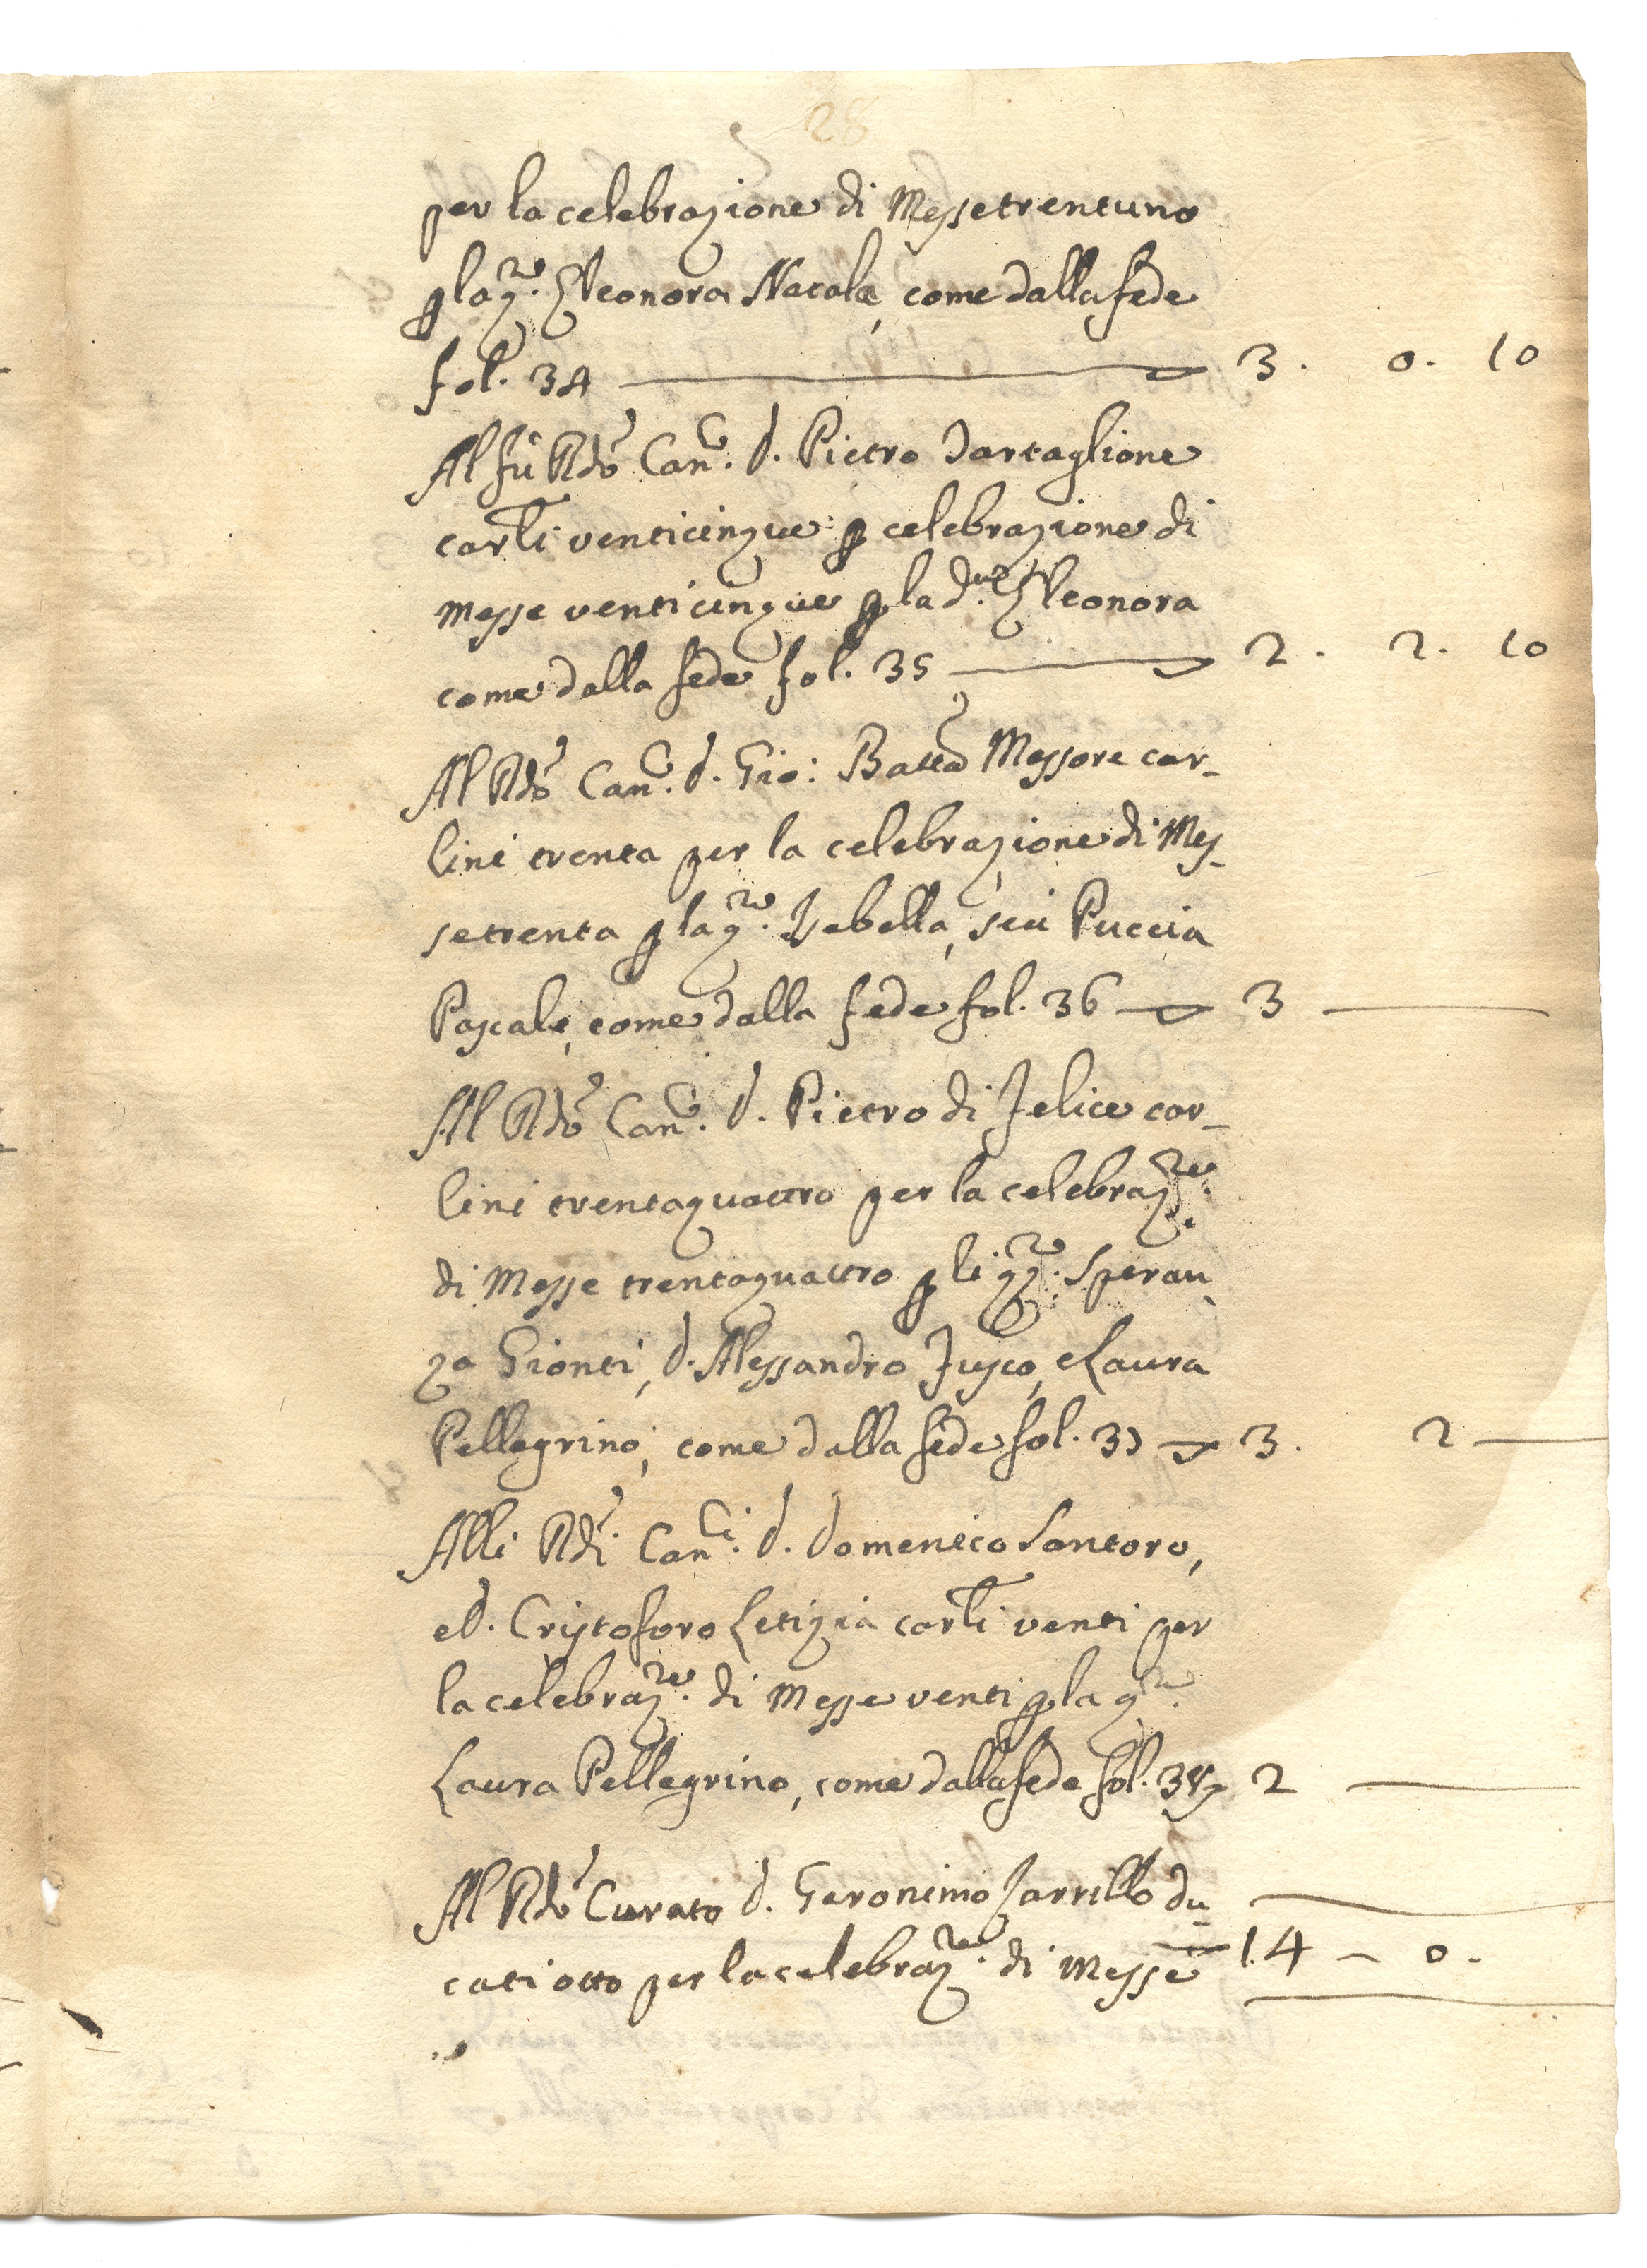 28
per la celebrazione di Messe trentuno
p la q.m Eleonora Nacala, come dalla fede
fol. 34 3. 0. 10
Al fù Rdo Can.co d. Pietro Tartaglione
carli venticinque p celebrazione di
Messe venticinque p la d.a Eleonora
come dalla fede fol. 35 2. 2. 10
Al Rdo Can.co d. Gio: Batta Messore car-
lini trenta per la celebrazione di Mes-
se trenta p la q.m Isabella, seu Puccia
Pascale, come dalla fede fol. 36 3
Al Rdo Can.co d. Pietro di Felice car-
lini trentaquattro per la celebraz.ne
di Messe trentaquattro p li qq.m Speran-
za Gionti, d. Alessandro Fusco, e Laura
Pellegrino, come dalla fede fol. 37 3. 2
Alli Rdi Can.ci d. Domenico Santoro,
e d. Cristoforo Letizia carli venti per
la celebraz.ne di Messe venti p la q.m
Laura Pellegrino, come dalla fede fol. 38 2
Al Rdo Curato d. Geronimo Zarrillo du-
cati otto per la celebraz.ne di Messe 14 - 0.